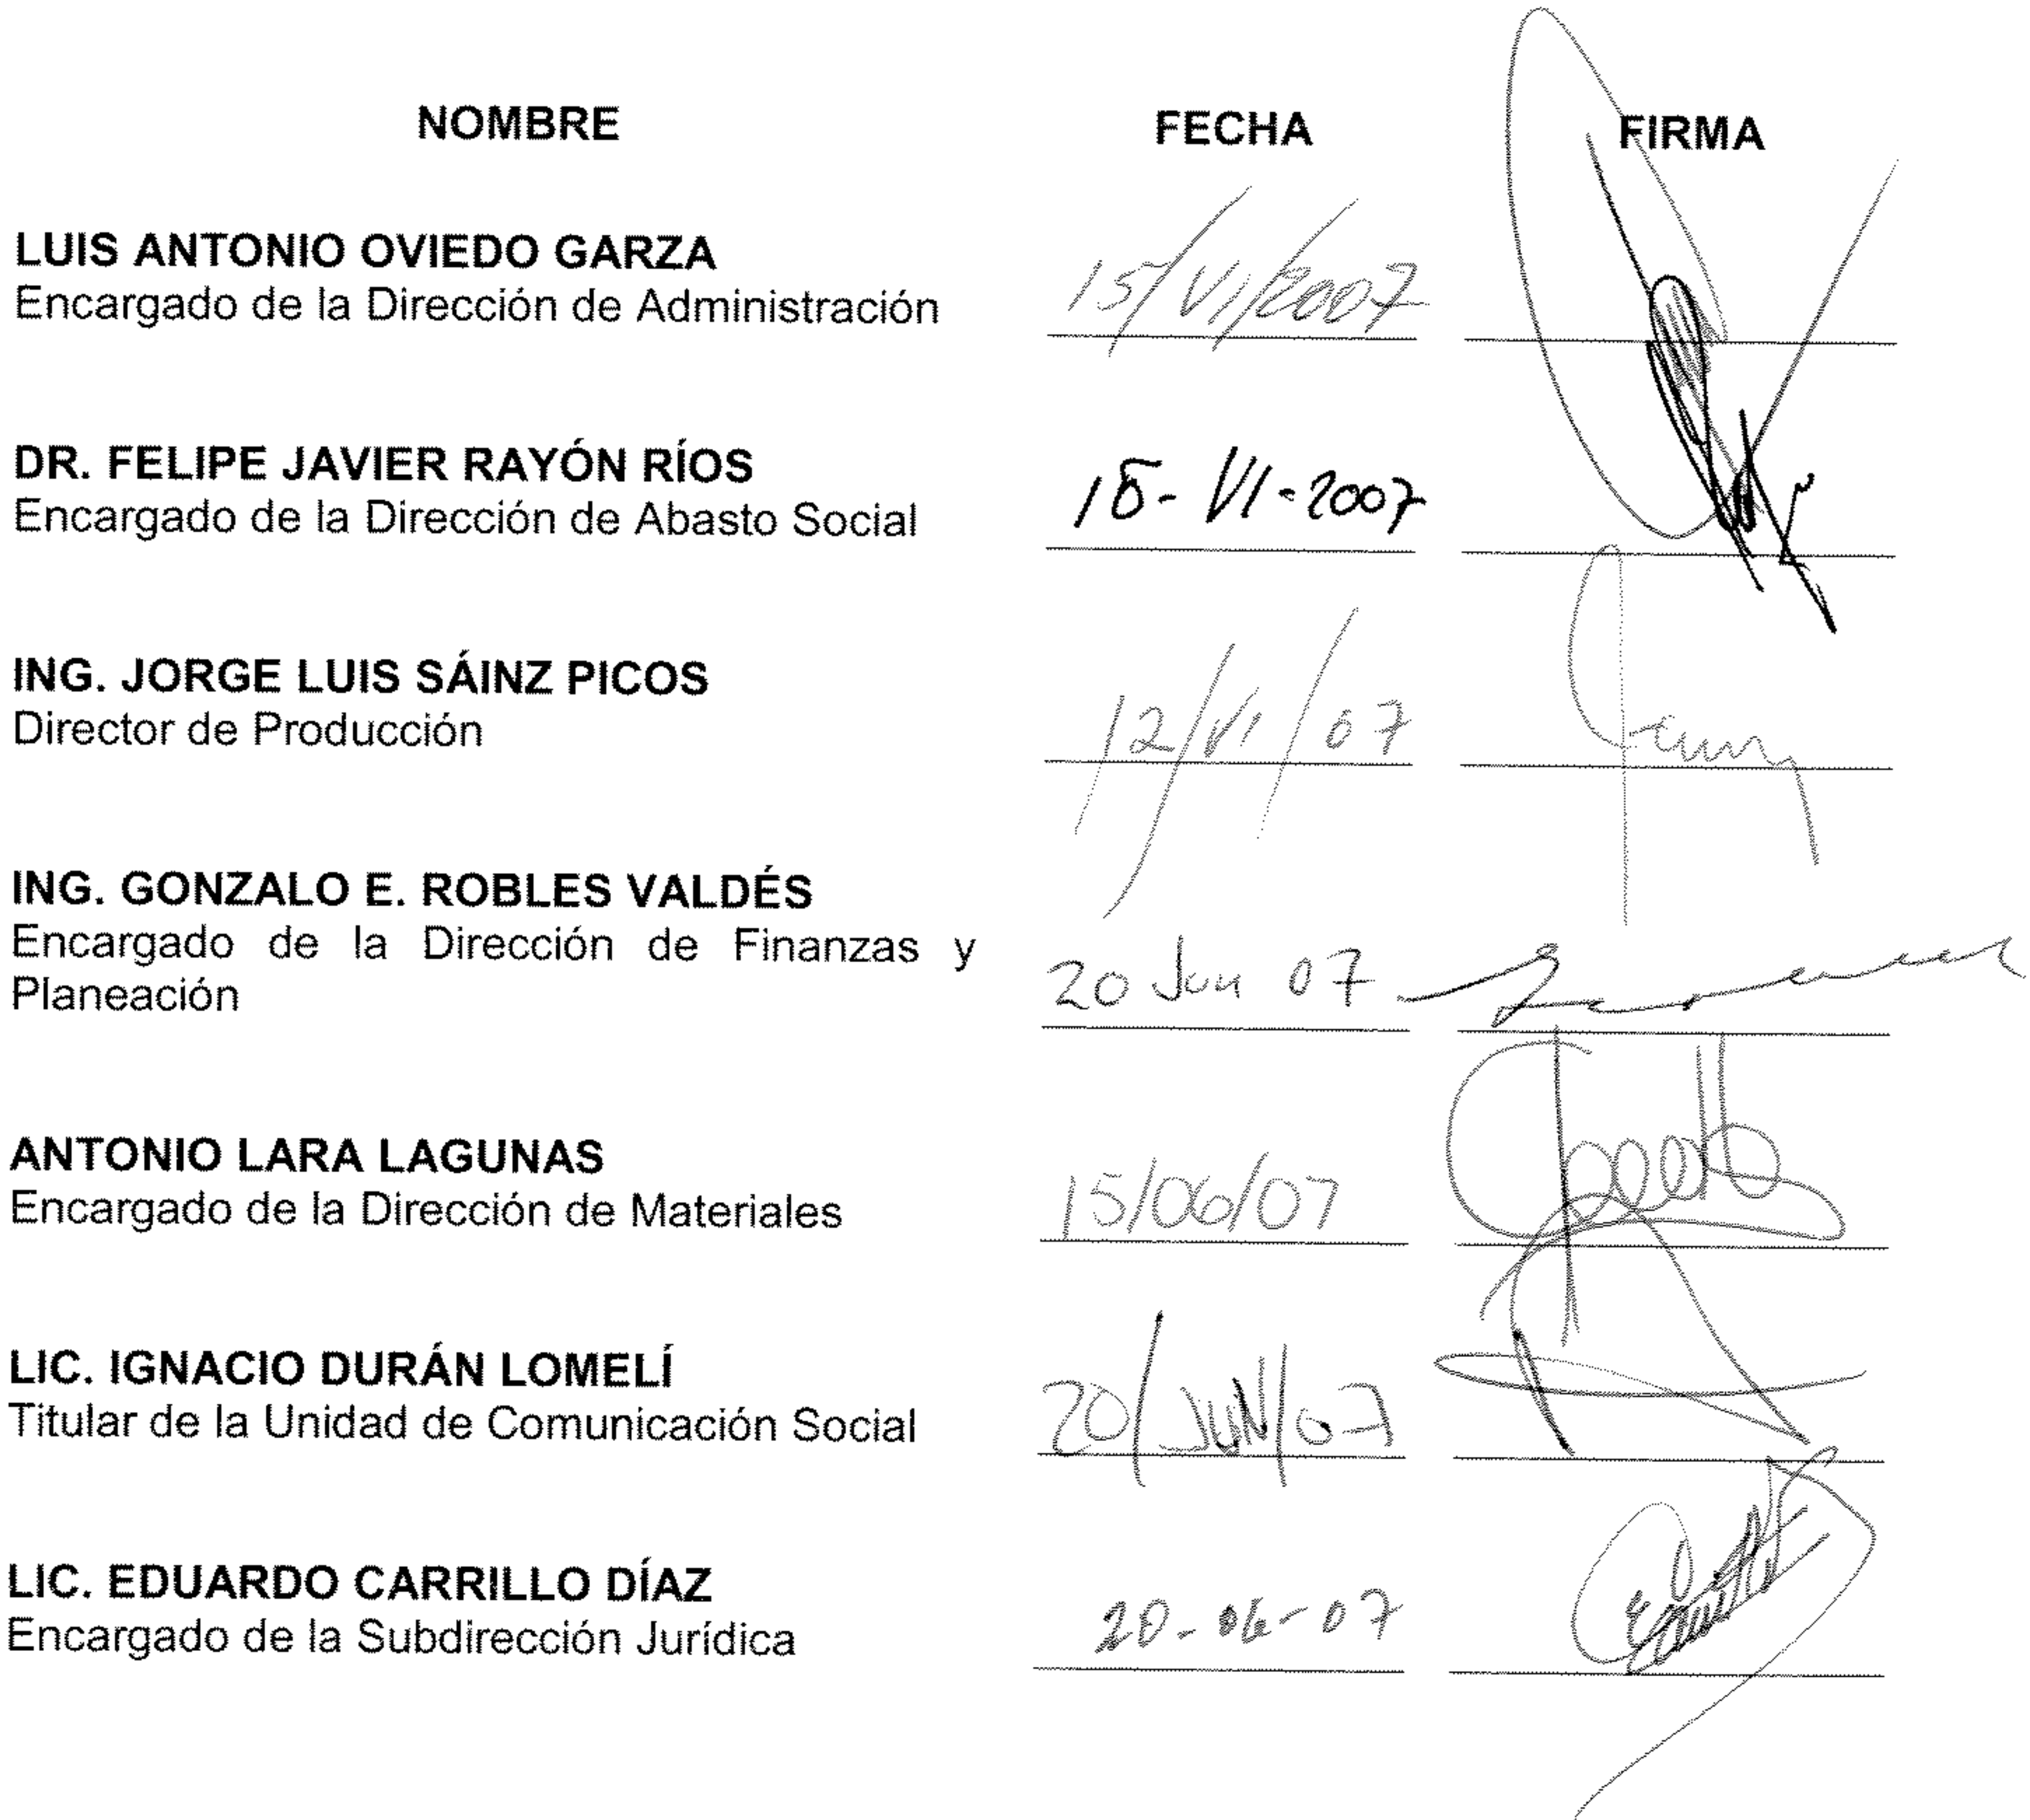 NOMBRE FECHA FIRMA
LUIS ANTONIO OVIEDO GARZA
Encargado de la Dirección de Administración 15/VI/2007
DR. FELIPE JAVIER RAYÓN RÍOS
Encargado de la Dirección de Abasto Social 15-VI-2007
ING. JORGE LUIS SÁINZ PICOS
Director de Producción 12/VI/07
ING. GONZALO E. ROBLES VALDÉS
Encargado de la Dirección de Finanzas y
Planeación 20 Jun 07
ANTONIO LARA LAGUNAS
Encargado de la Dirección de Materiales 15/06/07
LIC. IGNACIO DURÁN LOMELÍ
Titular de la Unidad de Comunicación Social 20/JUN/07
LIC. EDUARDO CARRILLO DÍAZ
Encargado de la Subdirección Jurídica 20-06-07